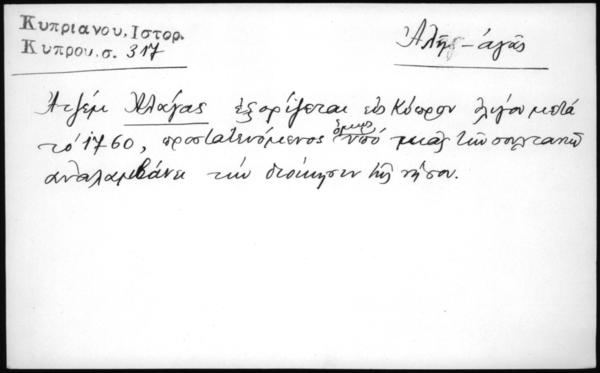 Κυπριανου, Ιστορ.
Κυπρου. σ. 317
Ἀλῆ-ἀγᾶς
Ατζέμ Αλάγας ἐξορίζεται εἰς Κύπρον ὀλίγον μετά
τό 1760, προστατευόμενος ὅμως ὑπό μιᾶς τῶν σουλτανῶν
ἀναλαμβάνει τήν διοίκησιν τῆς νήσου.